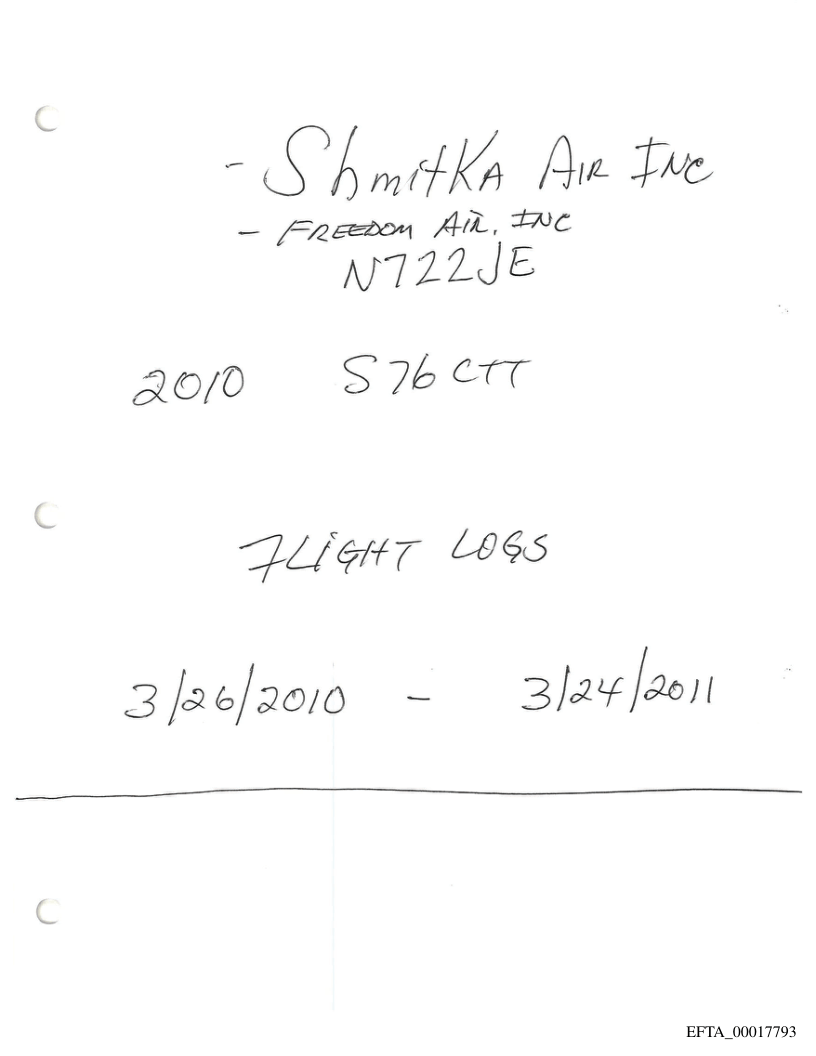 - Shmitka Air Inc
- FREEDOM AIR, INC
N722JE
2010 S76 CTT
FLIGHT LOGS
3/26/2010 - 3/24/2011
EFTA_00017793